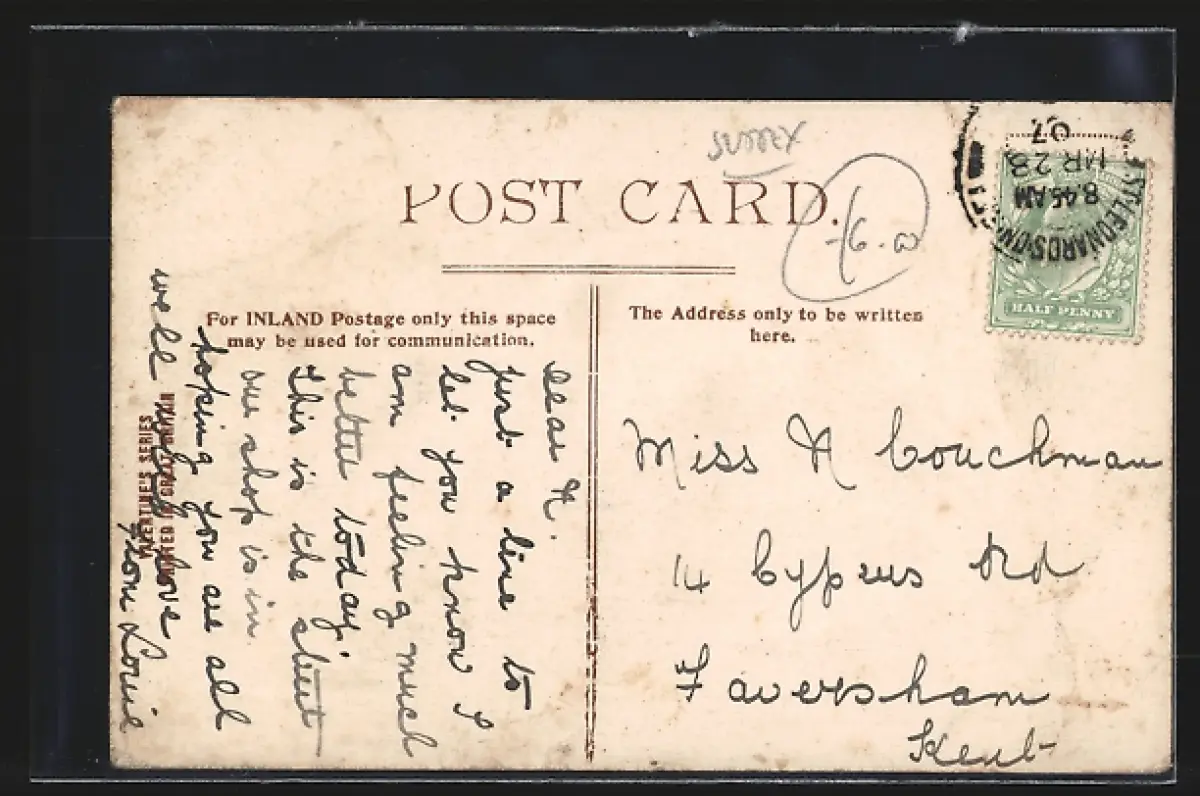 SUSSEX
POST CARD.
-/6.
ST LEONARDS-ON-
8.45 AM
MR 28
07
HALF PENNY
For INLAND Postage only this space
may be used for communication.
The Address only to be written
here.
Dear N.
Just a line to
let you know I
am feeling much
better today.
This is the street
our shop is in
hoping you are all
well with love
from Louie
VALENTINE'S SERIES
PRINTED IN GREAT BRITAIN
Miss N Couchman
14 Cyprus Rd
Faversham
Kent